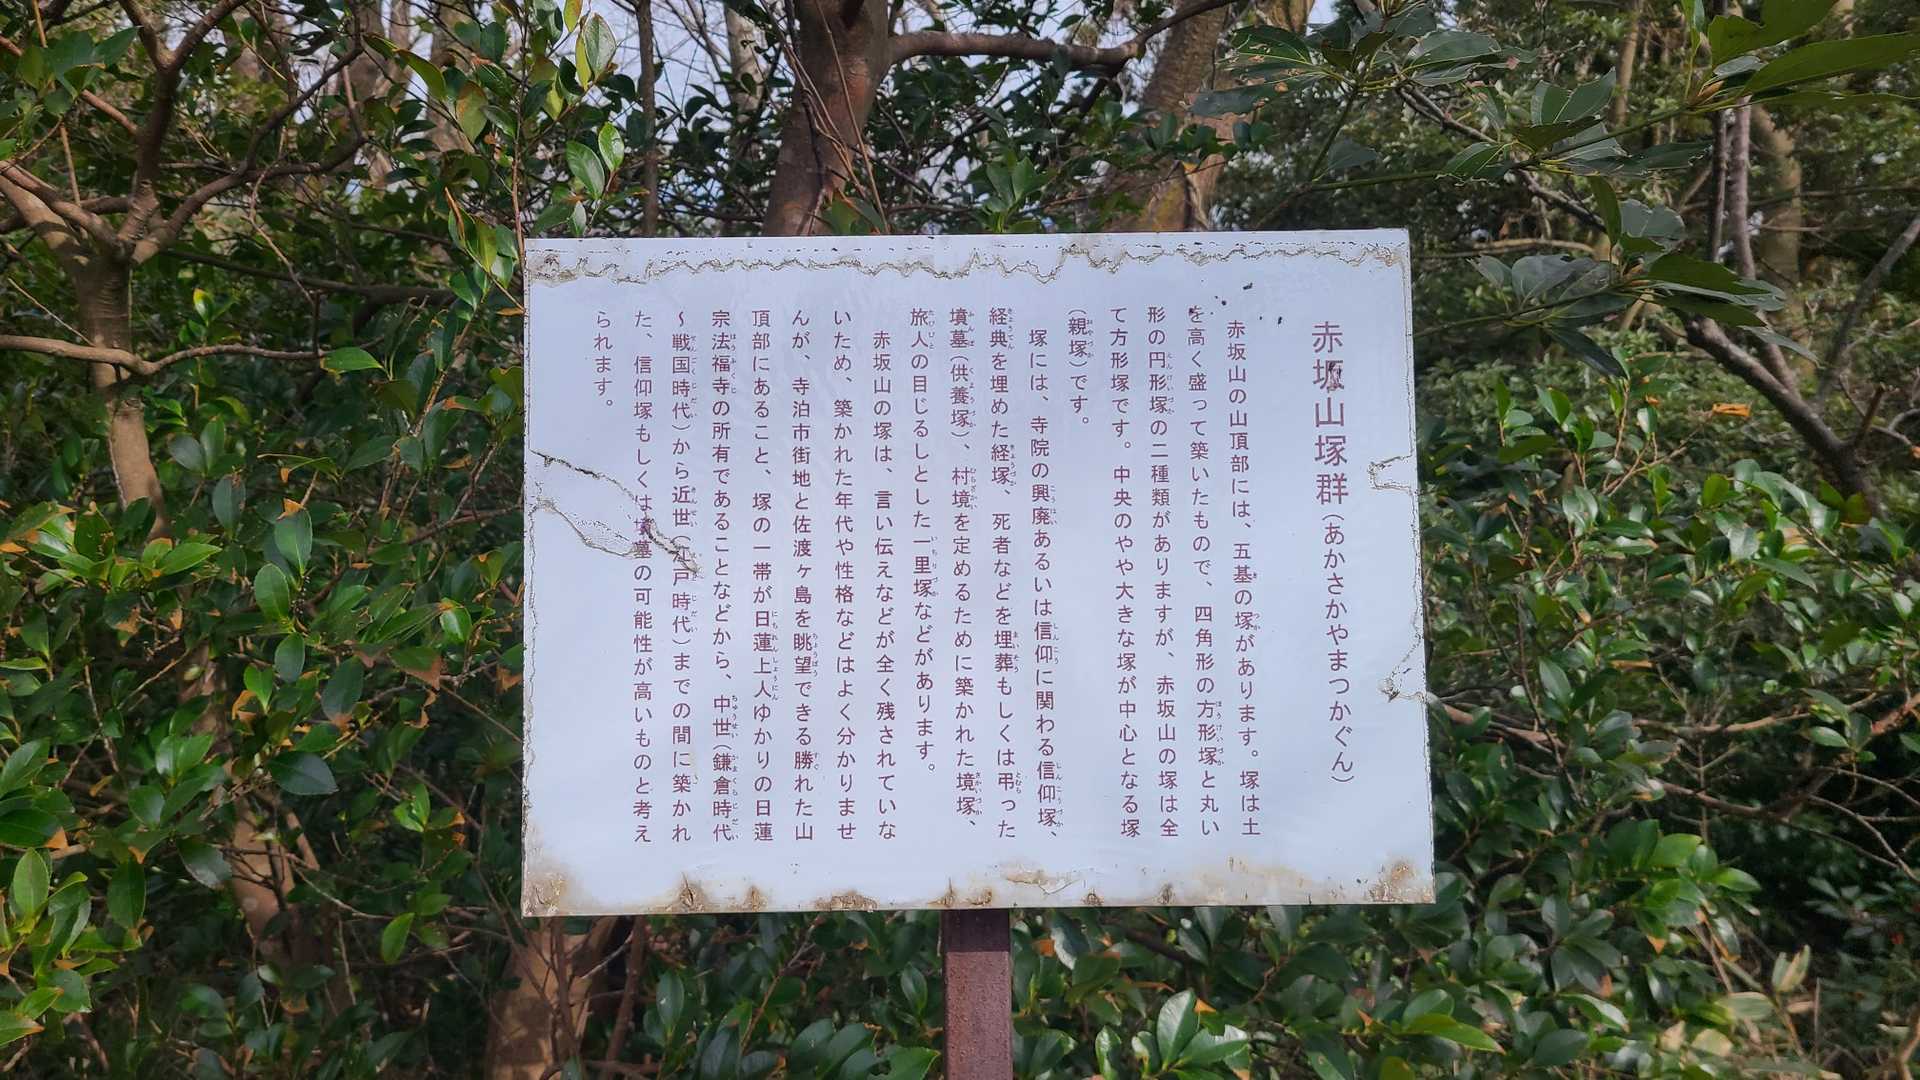 赤坂山塚群(あかさかやまつかぐん)
赤坂山の山頂部には、五基の塚があります。塚は土
を高く盛って築いたもので、四角形の方形塚と丸い
形の円形塚の二種類がありますが、赤坂山の塚は全
て方形塚です。中央のやや大きな塚が中心となる塚
(親塚)です。
塚には、寺院の興廃あるいは信仰に関わる信仰塚、
経典を埋めた経塚、死者などを埋葬もしくは弔った
墳墓(供養塚)、村境を定めるために築かれた境塚、
旅人の目じるしとした一里塚などがあります。
赤坂山の塚は、言い伝えなどが全く残されていな
いため、築かれた年代や性格などはよく分かりませ
んが、寺泊市街地と佐渡ヶ島を眺望できる勝れた山
頂部にあること、塚の一帯が日蓮上人ゆかりの日蓮
宗法福寺の所有であることなどから、中世(鎌倉時代
~戦国時代)から近世(江戸時代)までの間に築かれ
た、信仰塚もしくは墳墓の可能性が高いものと考え
られます。